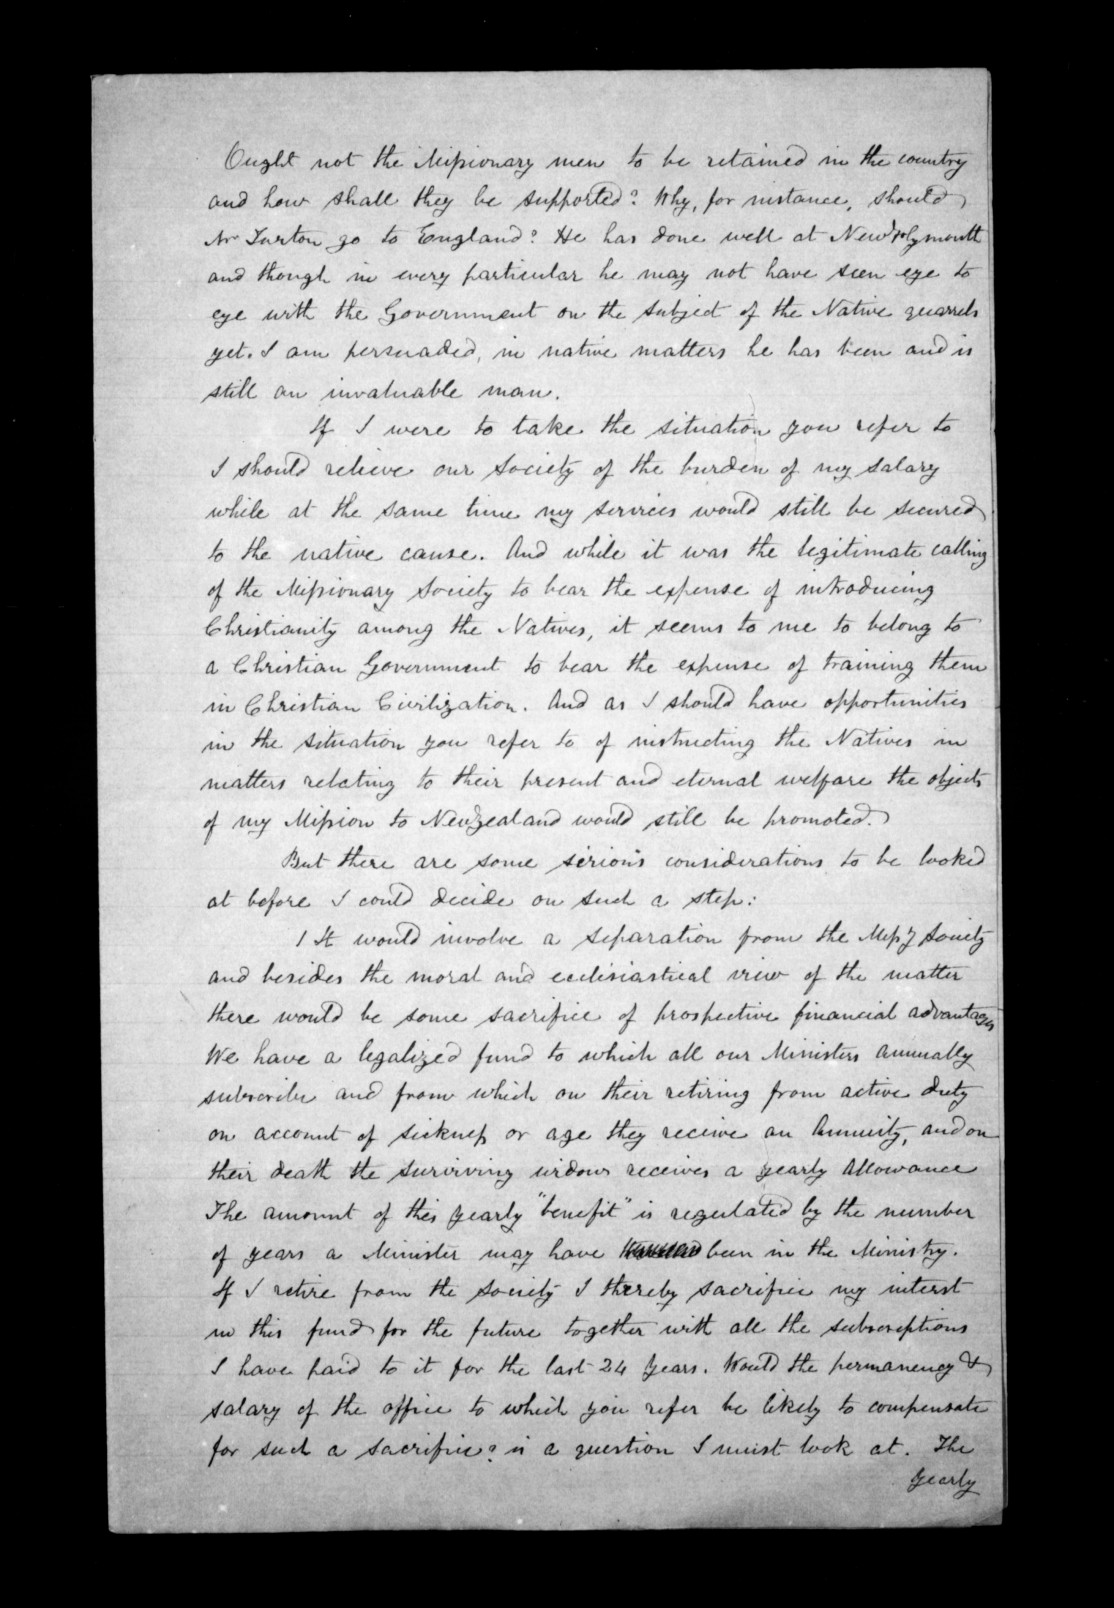 Ought not the Missionary men to be retained in the country
and how shall they be supported? Why, for instance, should
Mr Turton go to England? He has done well at New Plymouth
and though in every particular he may not have seen eye to
eye with the Government on the subject of the Native quarrels
yet. I am persuaded, in native matters he has been and is
still an invaluable man.
If I were to take the situation you refer to
I should relieve our Society of the burden of my salary
while at the same time my services would still be secured
to the native cause. And while it was the legitimate calling
of the Missionary Society to bear the expense of introducing
Christianity among the Natives, it seems to me to belong to
a Christian Government to bear the expense of training them
in Christian Civilization. And as I should have opportunities
in the situation you refer to of instructing the Natives in
matters relating to their present and eternal welfare the objects
of my Mission to New Zealand would still be promoted.
But there are some serious considerations to be looked
at before I could decide on such a step:
1 It would involve a separation from the Missy Society
and besides the moral and ecclesiastical view of the matter
there would be some sacrifice of prospective financial advantages
We have a legalized fund to which all our Ministers annually
subscribe and from which on their retiring from active duty
on account of sickness or age they receive an Annuity, and on
their death the surviving widows receives a yearly Allowance
The amount of this yearly "benefit" is regulated by the number
of years a Minister may have been in the Ministry.
If I retire from the Society I thereby sacrifice my interest
in this fund for the future together with all the subscriptions
I have paid to it for the last 24 Years. Would the permanency &
salary of the office to which you refer be likely to compensate
for such a sacrifice? is a question I must look at. The
yearly